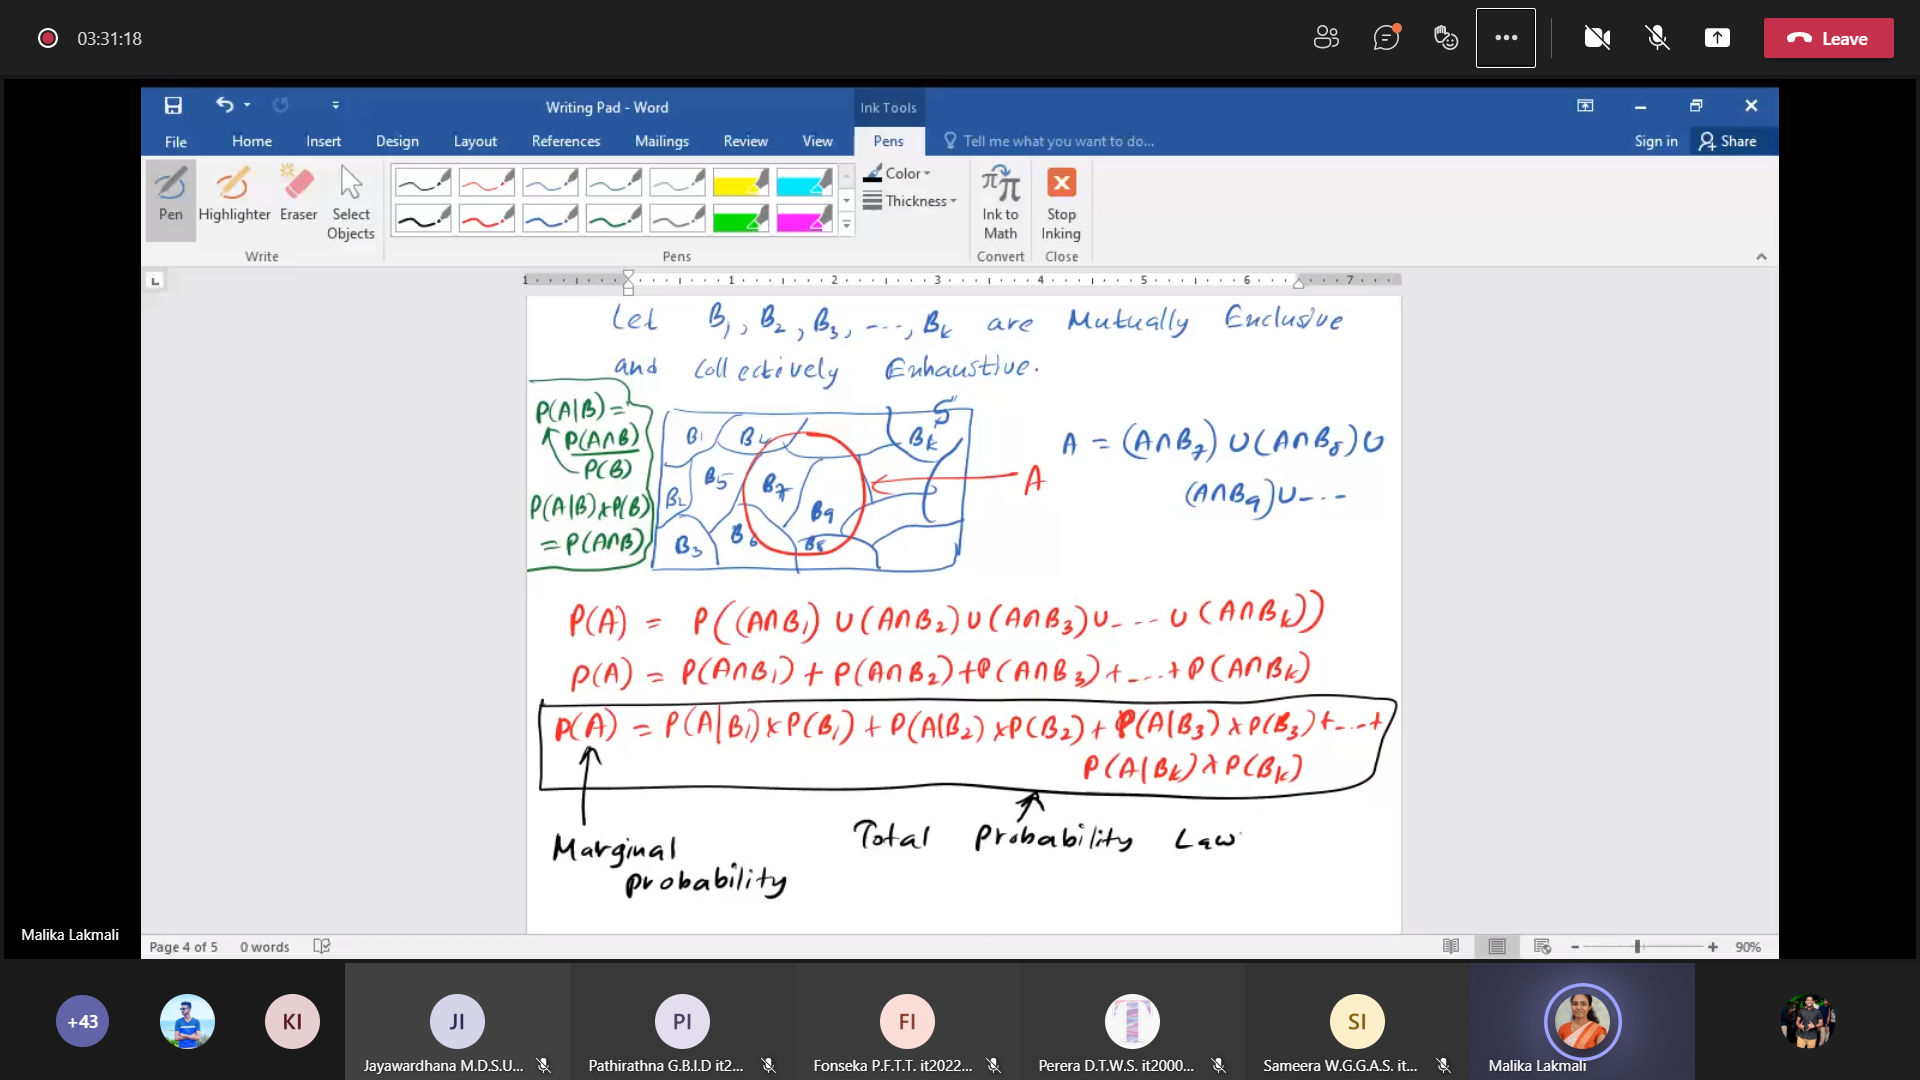 03:31:18
Leave
Writing Pad - Word
Ink Tools
File Home Insert Design Layout References Mailings Review View Pens Tell me what you want to do...
Sign in Share
Pen Highlighter Eraser Select Objects
Write
Pens
Color
Thickness
Ink to Math
Convert
Stop Inking
Close
1 1 2 3 4 5 6 7
Let B₁, B₂, B₃, ..., Bₖ are Mutually Exclusive
and Collectively Exhaustive.
P(A|B) =
P(A∩B)
P(B)
P(A|B)×P(B)
= P(A∩B)
S
B₁ B₄ Bₖ
B₂ B₅ B₇ B₉
B₃ B₆ B₈
A
A = (A∩B₇) ∪ (A∩B₈) ∪
(A∩B₉) ∪ ...
P(A) = P((A∩B₁) ∪ (A∩B₂) ∪ (A∩B₃) ∪ ... ∪ (A∩Bₖ))
P(A) = P(A∩B₁) + P(A∩B₂) + P(A∩B₃) + ... + P(A∩Bₖ)
P(A) = P(A|B₁)×P(B₁) + P(A|B₂)×P(B₂) + P(A|B₃)×P(B₃) + ... +
P(A|Bₖ)×P(Bₖ)
Marginal probability
Total Probability Law
Malika Lakmali
Page 4 of 5 0 words
90%
+43
KI
JI
PI
FI
SI
Jayawardhana M.D.S.U...
Pathirathna G.B.I.D it2...
Fonseka P.F.T.T. it2022...
Perera D.T.W.S. it2000...
Sameera W.G.G.A.S. it...
Malika Lakmali